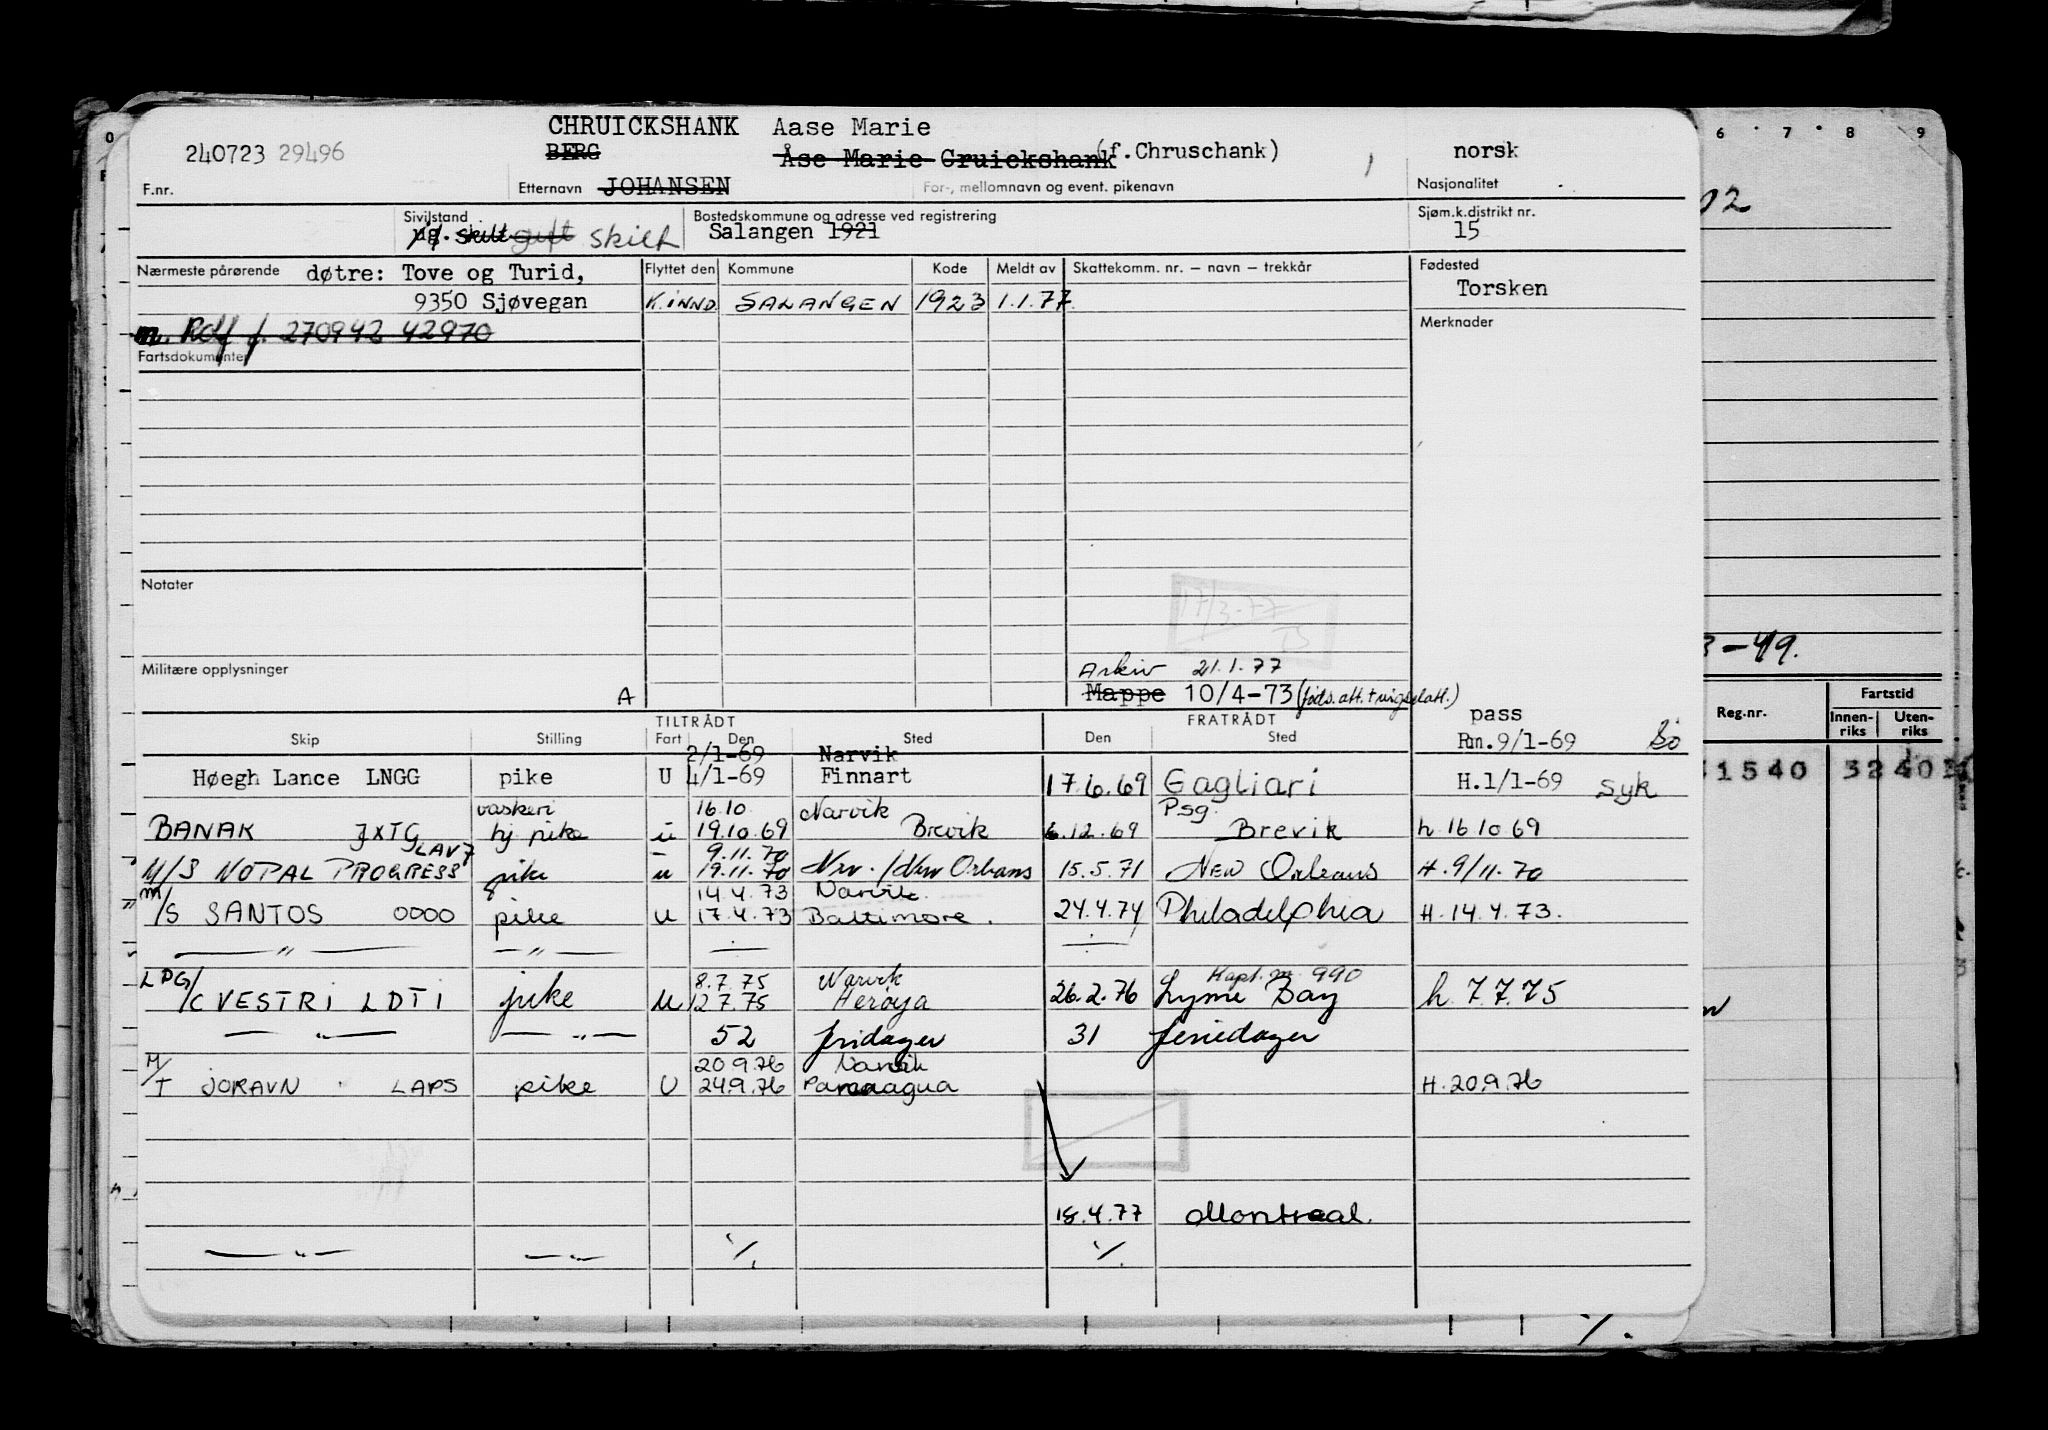 CHRUICKSHANK Aase Marie
240723 29496 BERG Åse Marie Cruickshank (f.Chruschank) norsk
F.nr. Etternavn JOHANSEN For-, mellomnavn og event. pikenavn Nasjonalitet
Sivilstand Bostedskommune og adresse ved registrering Sjøm.k.distrikt nr.
ug. skilt gift skilt Salangen 1921 15
Nærmeste pårørende døtre: Tove og Turid, Flyttet den Kommune Kode Meldt av Skattekomm. nr. – navn – trekkår Fødested
Torsken
9350 Sjøvegan K.INND. SALANGEN 1923 1.1.77.
Merknader
m. Rolf f. 270942 42970
Fartsdokumenter
Notater
17/3-77
TS
Militære opplysninger Arkiv 21.1.77
A Mappe 10/4-73
TILTRÅDT FRATRÅDT pass
Skip Stilling Fart Den Sted Den Sted Rm.9/1-69
2/1-69 Narvik
Høegh Lance LNGG pike U 4/1-69 Finnart 17.6.69 Gagliari H.1/1-69 syk
vaskeri 16.10 Narvik Psg.
BANAK JXTG hj. pike u 19.10.69 Brevik 6.12.69 Brevik h.16 10 69
LAV7 9.11.70
M/S NOPAL PROGRESS pike u 19.11.70 Nrv./New Orleans 15.5.71 New Orleans H.9/11.70
14.4.73 Narvik
M/S SANTOS OOOO pike U 17.4.73 Baltimore. 24.4.74 Philadelphia H.14.4.73.
— " — — " —
8.7.75 Narvik Kapt. m. 990
LPG/C VESTRI LDTI pike U 12.7.75 Herøya 26.2.76 Lyme Bay h.7.7.75
— " — — " — 52 fridager 31 feriedager
20.9.76 Narvik
M/T JORAVN LAPS pike U 24.9.76 Paranagua H.20.9.76
18.4.77 Montreal.
— " — — " — ⁒ ⁒
6 7 8 9
02
3-49.
Reg.nr. Fartstid
Innen-riks Uten-riks
1540 3240